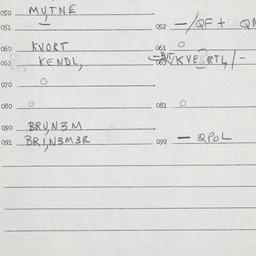 050 MUTNE
051 — 052 —/QF + QM
060 KVORT 061 O
062 KENDL, 063 —BUT/KVE?RTL, /-
070 O
080 O 081 O
090 BRUN3M
091 BRIN3M3R 092 — QPOL